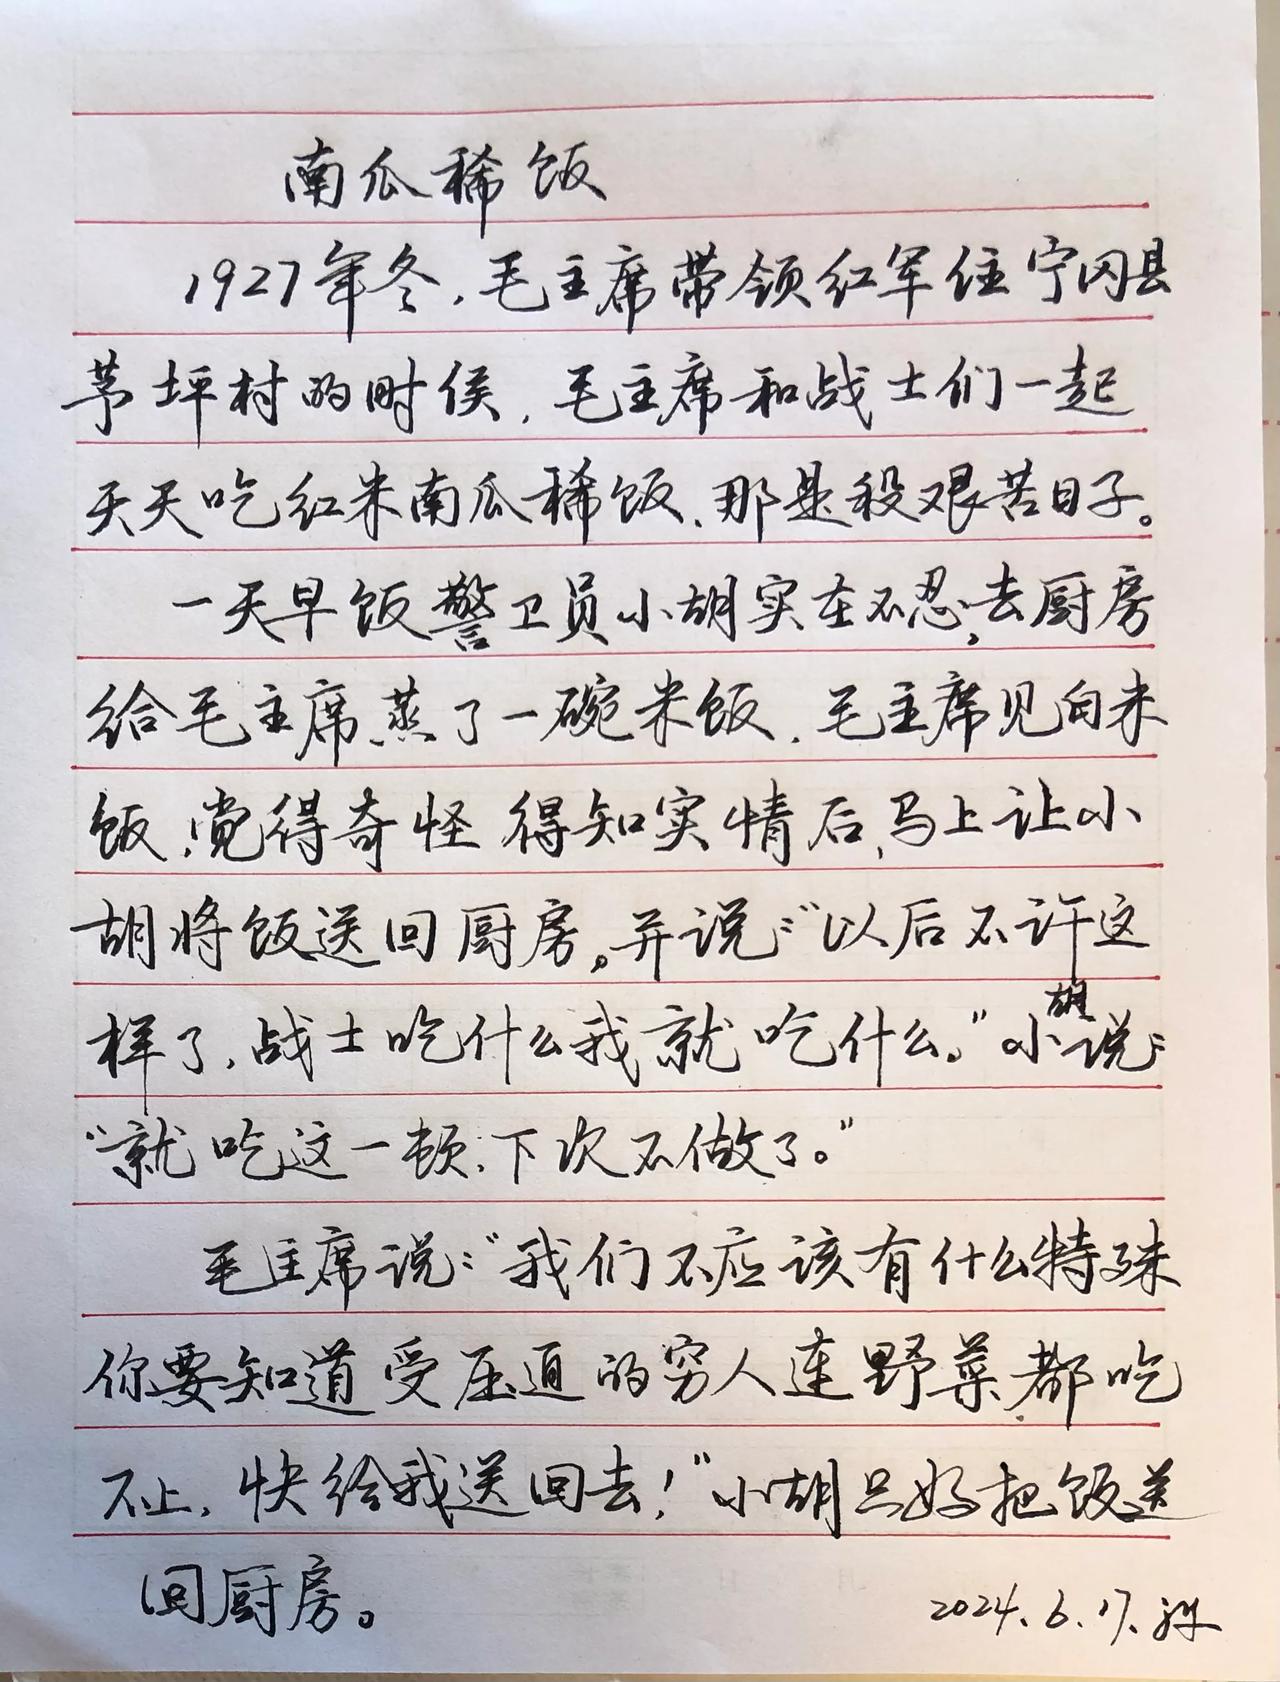 南瓜稀饭
1927年冬,毛主席带领红军住宁冈县
茅坪村的时侯,毛主席和战士们一起
天天吃红米南瓜稀饭、那是段艰苦日子。
一天早饭警卫员小胡实在不忍,去厨房
给毛主席蒸了一碗米饭,毛主席见白米
饭,觉得奇怪 得知实情后,马上让小
胡将饭送回厨房。并说:“以后不许这
样了,战士吃什么我就吃什么。”小胡说:
“就吃这一顿,下次不做了。”
毛主席说:“我们不应该有什么特殊
你要知道受压迫的穷人连野菜都吃
不上,快给我送回去!”小胡只好把饭送
回厨房。
2024.6.17.